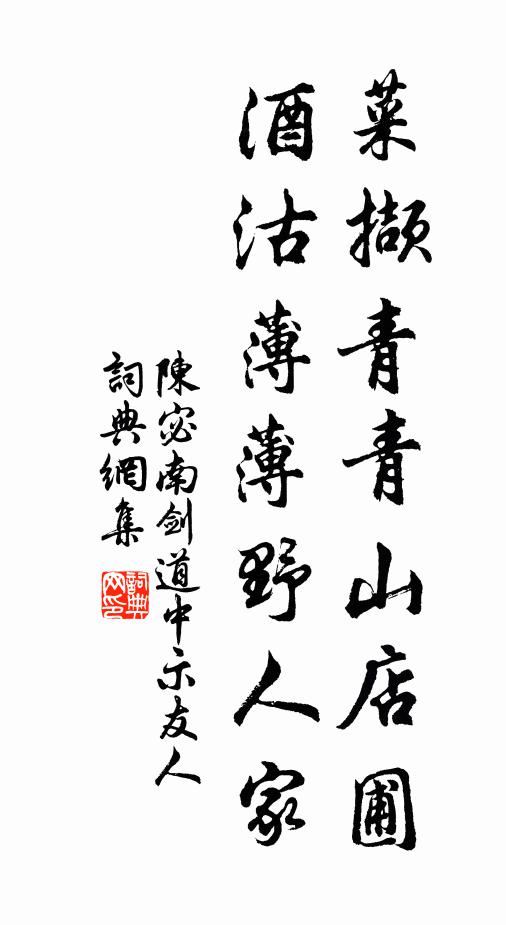 菜擷青青山店圃
酒沽薄薄野人家
陳宓南剑道中示友人
詞典網集
詞典网印